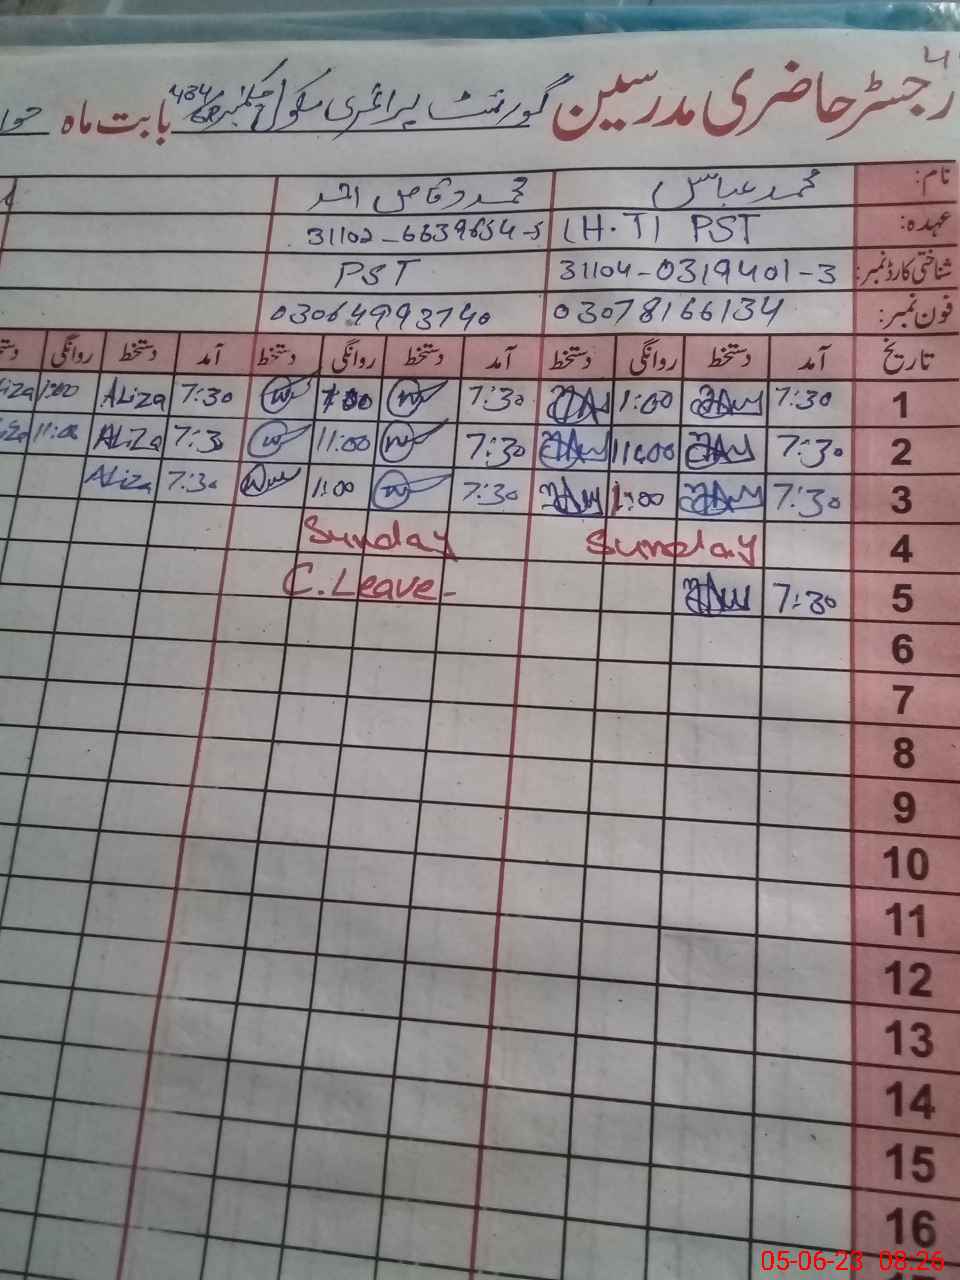 رجسٹر حاضری مدرسین گورنمنٹ پرائمری سکول بابت ماہ
نام: محمد عباس محمد وقاص احمد
عہدہ: (H.T) PST 31102-6639654-5
شناختی کارڈ نمبر: 31104-0319401-3 PST
فون نمبر: 03078166134 03064993740
تاریخ آمد دستخط روانگی دستخط آمد دستخط روانگی دستخط آمد دستخط روانگی
1 7:30 1:00 7:30 7:30 ALiza 1:00
2 7:30 11:00 7:30 11:00 7:30 ALiZa 11:00
3 7:30 1:00 7:30 1:00 7:30 ALiza
4 Sunday Sunday
5 7:30 C.Leave-
6
7
8
9
10
11
12
13
14
15
16
05-06-23 08:26